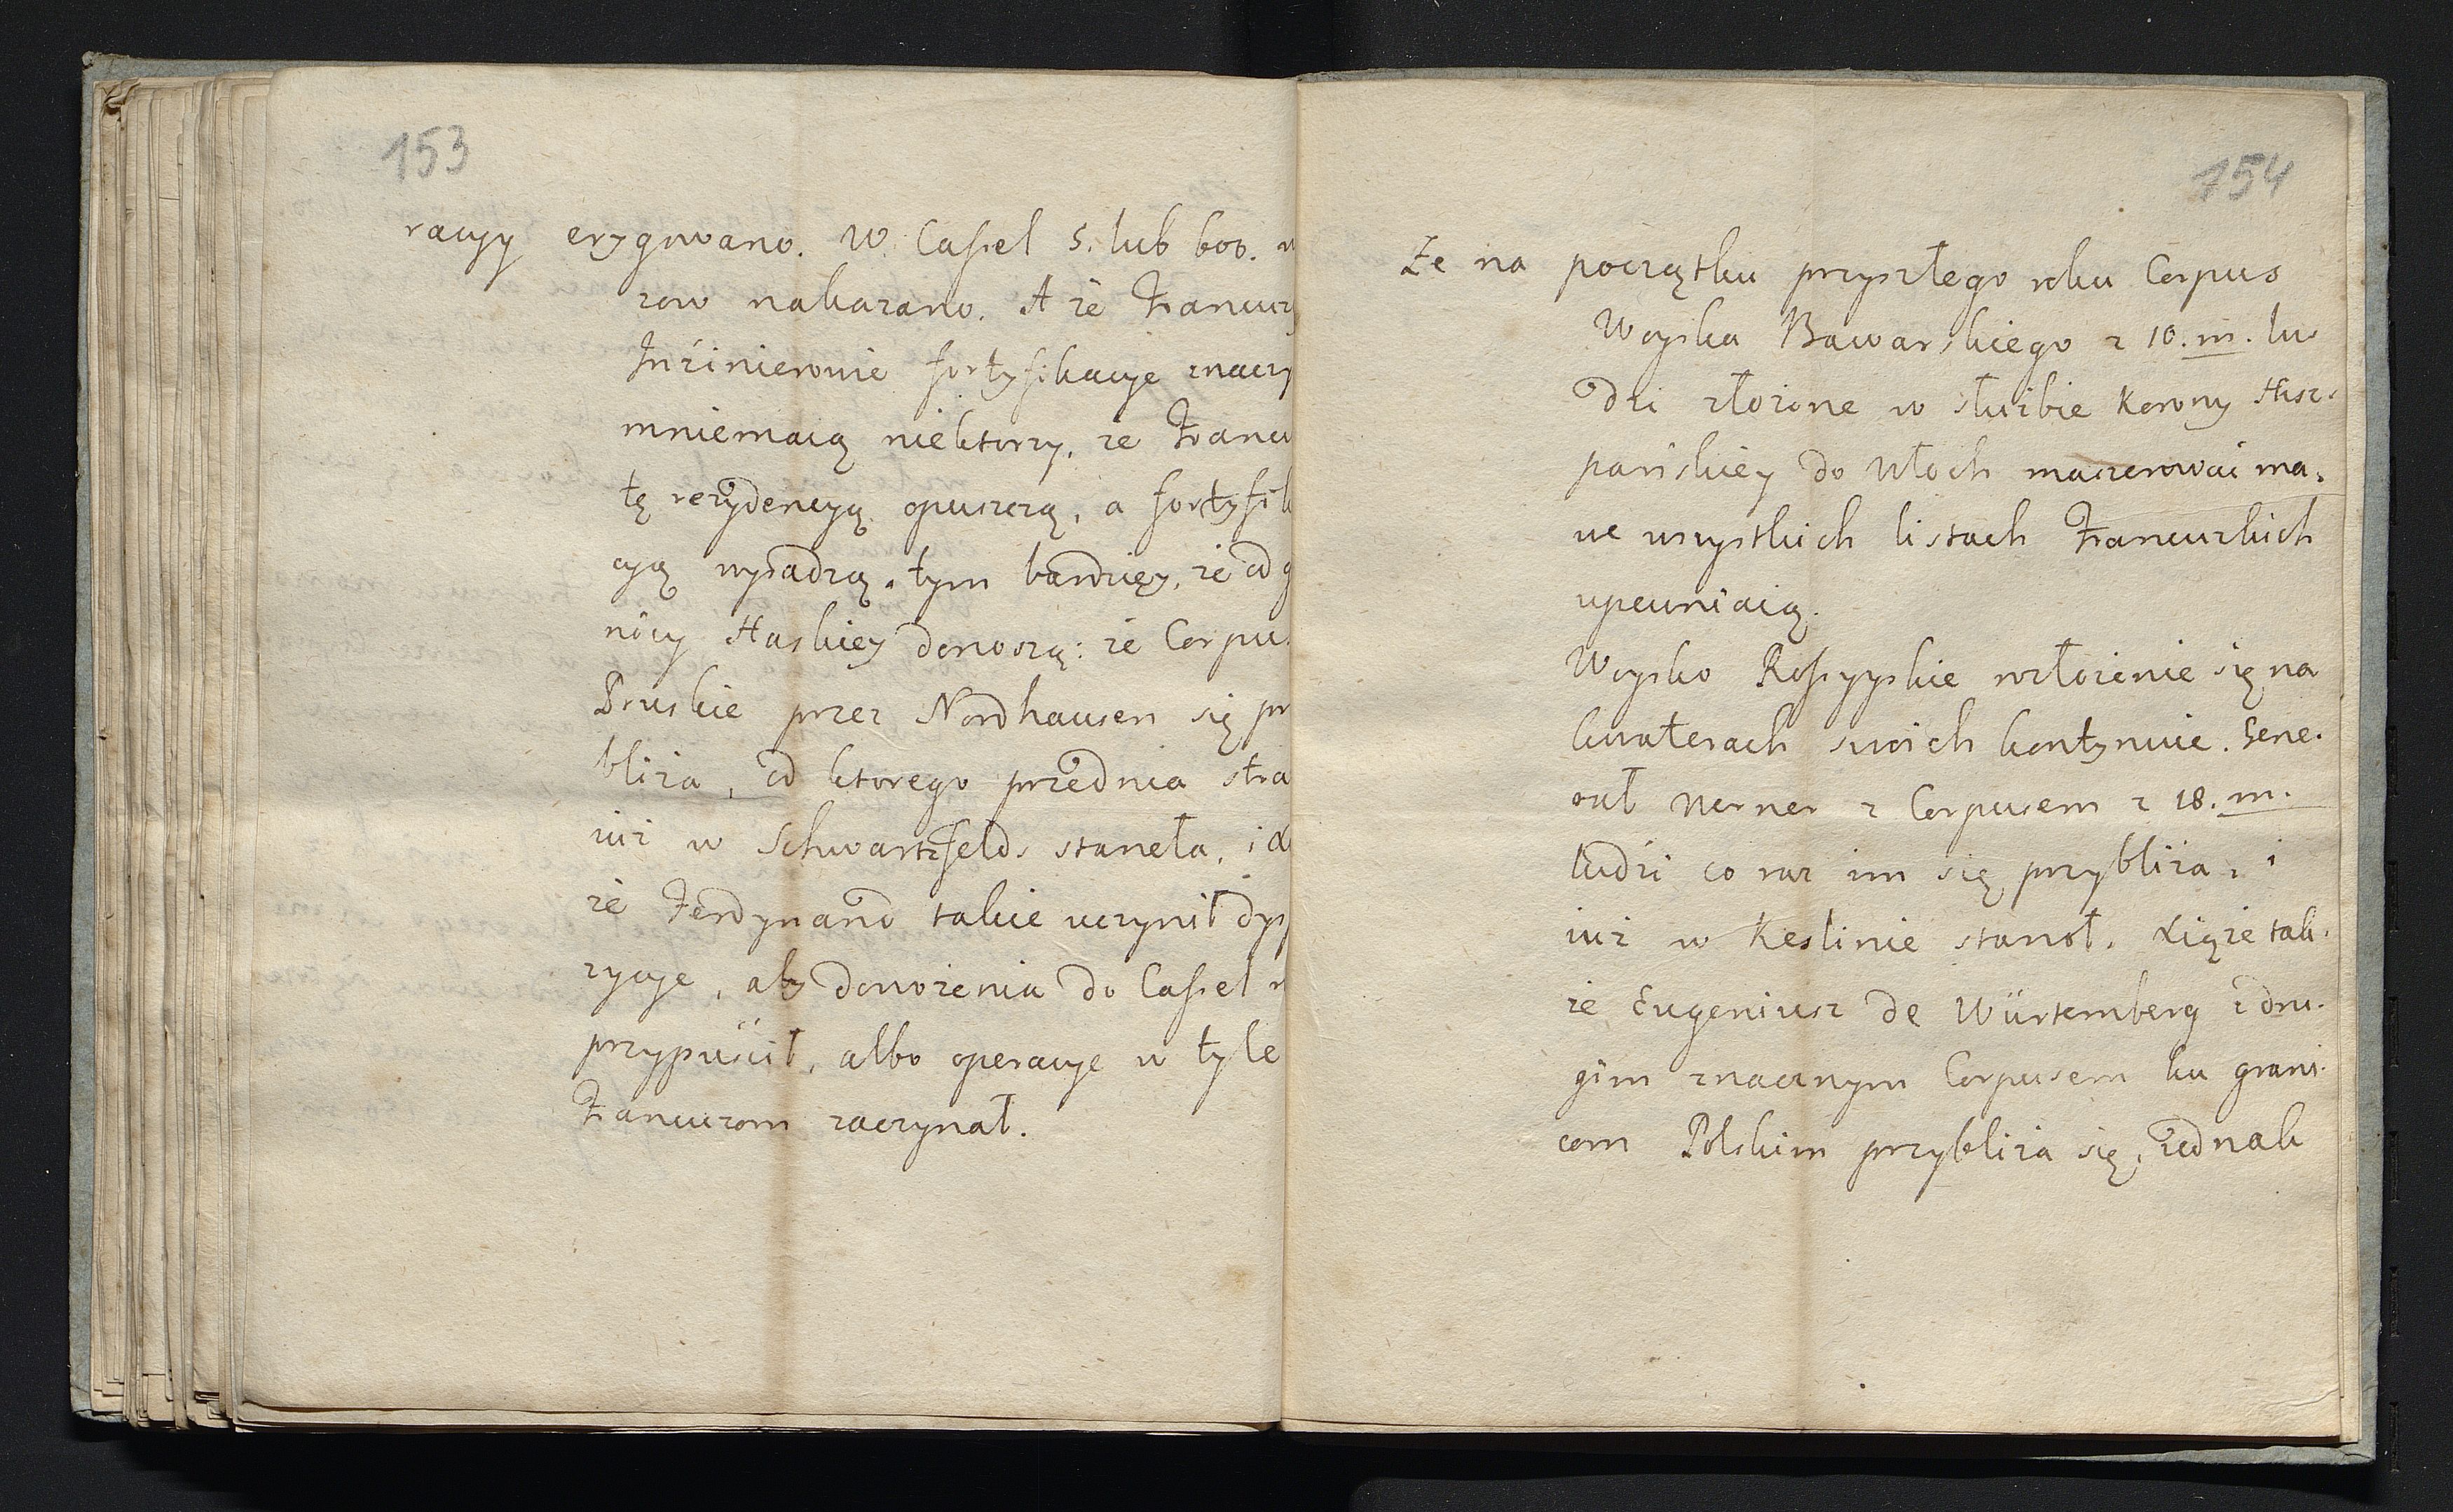 153
racyy erygowano. W Cassel 5. lub 600.
row nakazano. A że Francuz
Inżinierowie fortyfikacye znaczn
mniemaią niektorzy, ze Francu
tę rezydencyą opuszczą, a fortyfik
cyą wysadzą. tym bardziey, że od g
nicy Haskiey donoszą: że Corpu
Pruskie przez Nordhausen się pr
bliza, od ktorego przednia stra
iuż w Schwartzfelds staneła, i
że Ferdynand takie uczynił dys
zycye, aby dowożenia do Cassel n
przypuścił, albo operacye w tyle
Francuzom zaczynał.
154
Że na początku przyszłego roku Corpus
Woyska Bawarskiego z 10. m. lu
dzi złożone w służbie Korony Hisz
pańskiey do Włoch maszerować ma,
we wszystkich listach Francuzkich
upewniaią.
Woysko Rossyyskie rozłożenie się na
kwaterach swoich kontynuie. Gene.
rał Werner z Corpusem z 18. m.
ludzi co raz im się przybliża, i
iuż w Keslinie stanoł. Xiąże tak
że Eugeniusz de Würtemberg z dru.
gim znacznym Corpusem ku grani.
com Polskim przybliża się, iednak